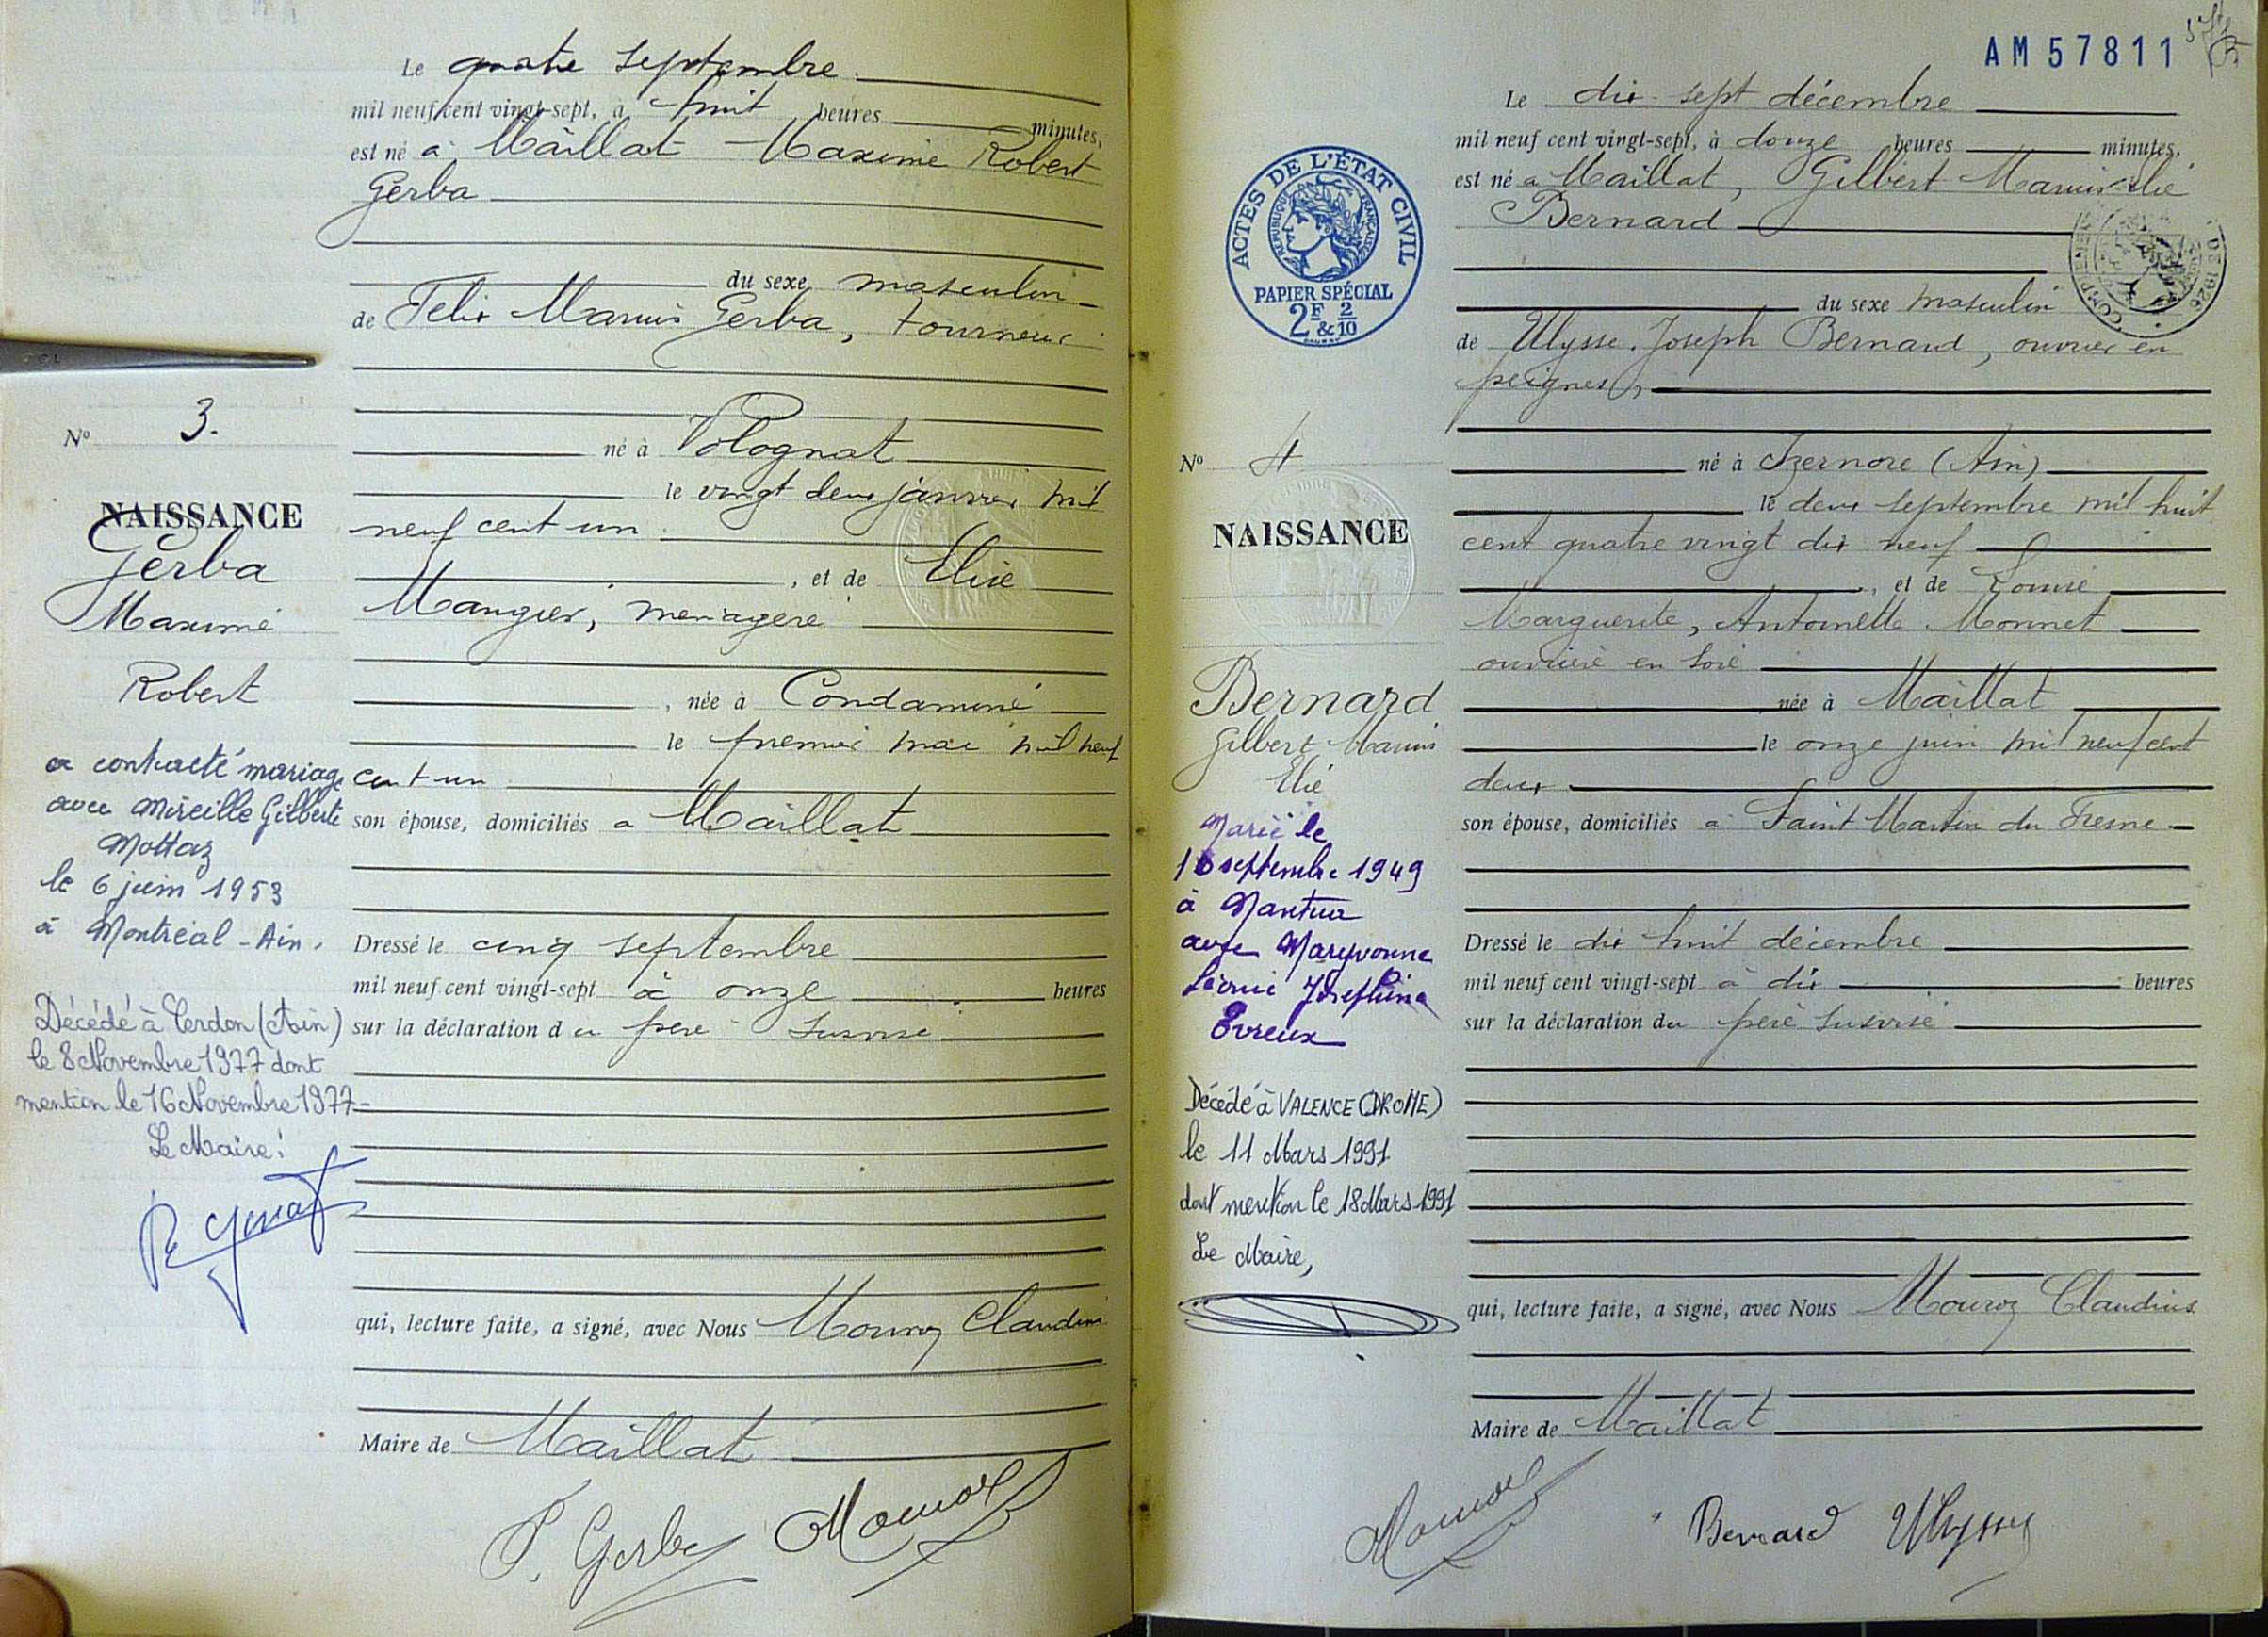 Le quatre septembre
mil neuf cent vingt-sept, à huit heures minutes,
est né à Maillat Maxime Robert
Gerba
du sexe masculin
de Felix Marius Gerba, tourneur
né à Volognat
le vingt deux janvier mil
neuf cent un
, et de Elise
Mangier, menagère
, née à Condamine
le premier mai mil neuf
cent un
son épouse, domiciliés a Maillat
Dressé le cinq septembre
mil neuf cent vingt-sept à onze heures
sur la déclaration du père susvisé
qui, lecture faite, a signé, avec Nous Mouroz Claudius
Maire de Maillat
Gerba Mouroz
No 3.
NAISSANCE
Gerba
Maxime
Robert
a contracté mariage
avec Mireille Gilberte
Mottaz
le 6 juin 1953
à Montréal - Ain.
Décédé à Cerdon (Ain)
le 8 Novembre 1977 dont
mention le 16 Novembre 1977-
Le Maire:
AM57811
Le dix sept décembre
mil neuf cent vingt-sept, à douze heures minutes,
est né a Maillat, Gilbert Marius Elie
Bernard
du sexe masculin
de Ulysse Joseph Bernard, ouvrier en
peignes,
né à Izernore (Ain)
le deux septembre mil huit
cent quatre vingt dix neuf
, et de Louise
Marguerite, Antoinette Monnet
ouvrière en soie
née à Maillat
le onze juin mil neuf cent
deux
son épouse, domiciliés a Saint Martin du Fresne
Dressé le dix huit décembre
mil neuf cent vingt-sept à dix heures
sur la déclaration du père susvisé
qui, lecture faite, a signé, avec Nous Mouroz Claudius
Maire de Maillat
Mouroz Bernard Ulysse
ACTES DE L'ÉTAT CIVIL
RÉPUBLIQUE FRANÇAISE
PAPIER SPÉCIAL
2F & 2/10
No 4
NAISSANCE
Bernard
Gilbert Marius
Elie
Marié le
10 septembre 1949
à Nantua
avec Maryvonne
Léonie Joséphine
Evreux
Décédé à VALENCE (DROME)
le 11 Mars 1991
dont mention le 18 Mars 1991
Le Maire,